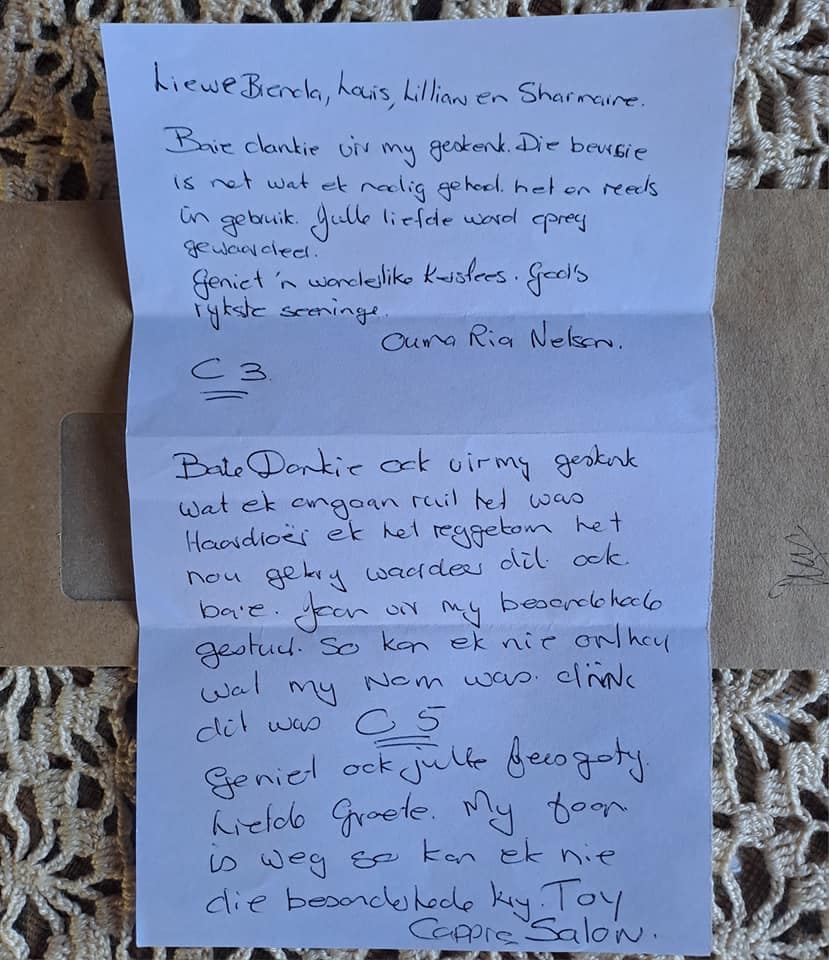 Liewe Brenda, Louis, Lillian en Sharmaine.
Baie dankie vir my geskenk. Die beursie
is net wat ek nodig gehad het en reeds
in gebruik. Julle liefde word opreg
gewaardeer.
Geniet 'n wonderlike Kersfees. God's
rykste seeninge.
Ouma Ria Nelson.
C 3.
Baie Dankie ook vir my geskenk
wat ek omgaan ruil het was
ek het reggekom het
nou gekry waardeer dit ook
baie. Joan vir my besonderhede
gestuur. So kan ek nie onthou
wat my Nom was. dink
dit was C 5
Geniet ook julle feesgety.
Liefde Groete. My foon
is weg so kan ek nie
die besonderhede kry. Toy
Salon.